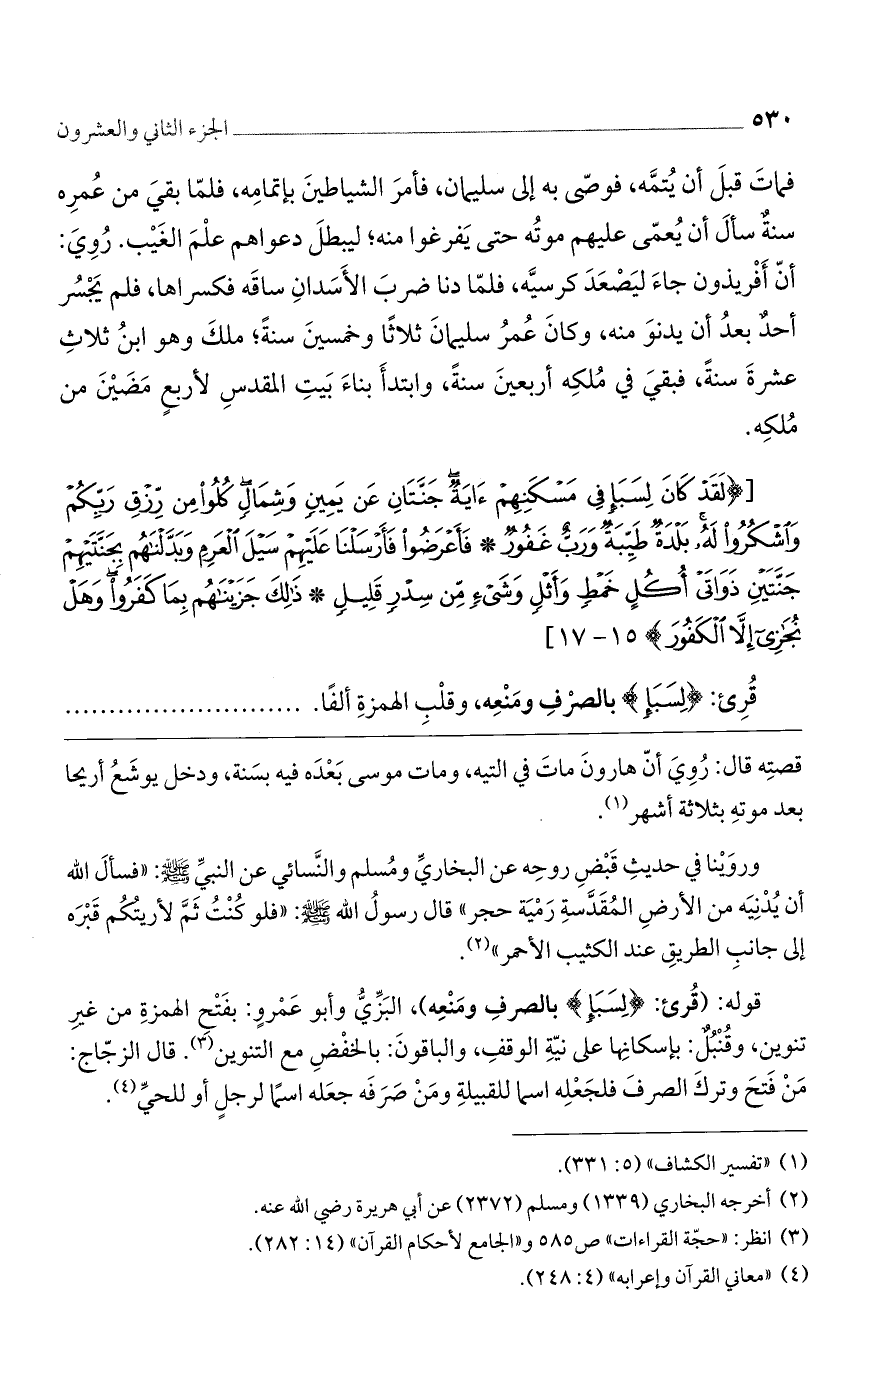 ٥٣٠ الجزء الثاني والعشرون
فماتَ قبلَ أن يُتمَّه، فوصّى به إلى سليمان، فأمرَ الشياطينَ بإتمامِه، فلمّا بقيَ من عُمرِه
سنةٌ سألَ أن يُعمّى عليهم موتُه حتى يَفرغوا منه؛ ليبطلَ دعواهم علْمَ الغَيْب. رُويَ:
أنّ أَفْريذون جاءَ ليَصْعَدَ كرسيَّه، فلمّا دنا ضربَ الأَسَدانِ ساقَه فكسراها، فلم يَجْسُر
أحدٌ بعدُ أن يدنوَ منه، وكانَ عُمرُ سليمانَ ثلاثًا وخمسينَ سنةً؛ ملكَ وهو ابنُ ثلاثِ
عشرةَ سنةً، فبقيَ في مُلكِه أربعينَ سنةً، وابتدأَ بناءَ بَيتِ المقدسِ لأربعٍ مَضَيْنَ من
مُلكِه.
[﴿لَقَدْ كَانَ لِسَبَإٍ فِى مَسْكَنِهِمْ ءَايَةٌ ۖ جَنَّتَانِ عَن يَمِينٍ وَشِمَالٍ ۖ كُلُوا۟ مِن رِّزْقِ رَبِّكُمْ
وَٱشْكُرُوا۟ لَهُۥ ۚ بَلْدَةٌ طَيِّبَةٌ وَرَبٌّ غَفُورٌ * فَأَعْرَضُوا۟ فَأَرْسَلْنَا عَلَيْهِمْ سَيْلَ ٱلْعَرِمِ وَبَدَّلْنَٰهُم بِجَنَّتَيْهِمْ
جَنَّتَيْنِ ذَوَاتَىْ أُكُلٍ خَمْطٍ وَأَثْلٍ وَشَىْءٍ مِّن سِدْرٍ قَلِيلٍ * ذَٰلِكَ جَزَيْنَٰهُم بِمَا كَفَرُوا۟ ۖ وَهَلْ
نُجَٰزِىٓ إِلَّا ٱلْكَفُورَ﴾ ١٥ - ١٧]
قُرِئ: ﴿لِسَبَإٍ﴾ بالصرْفِ ومَنْعِه، وقلْبِ الهمزةِ ألفًا. ..........................
قصتِه قال: رُويَ أنّ هارونَ ماتَ في التيه، ومات موسى بَعْدَه فيه بسَنة، ودخل يوشَعُ أريحا
بعد موتهِ بثلاثة أشهر(١).
وروَيْنا في حديثِ قَبْضِ روحِه عن البخاريِّ ومُسلم والنَّسائي عن النبيِّ ﷺ: «فسألَ الله
أن يُدْنِيَه من الأرضِ المُقَدَّسةِ رَمْيَة حجر» قال رسولُ الله ﷺ: «فلو كُنْتُ ثَمَّ لأريتُكُم قَبْرَه
إلى جانبِ الطريقِ عند الكثيب الأحمر»(٢).
قوله: (قُرئ: ﴿لِسَبَإٍ﴾ بالصرفِ ومَنْعِه)، البَزِّيُّ وأبو عَمْروٍ: بفَتْحِ الهمزةِ من غيرِ
تنوين، وقُنْبُلٌ: بإسكانِها على نيّةِ الوقفِ، والباقونَ: بالخفْضِ مع التنوين(٣). قال الزجّاج:
مَنْ فَتحَ وتركَ الصرفَ فلجَعْلِه اسما للقبيلةِ ومَنْ صَرَفَه جعَله اسمًا لرجلٍ أو للحيِّ(٤).
(١) «تفسير الكشاف» (٥: ٣٣١).
(٢) أخرجه البخاري (١٣٣٩) ومسلم (٢٣٧٢) عن أبي هريرة رضي الله عنه.
(٣) انظر: «حجّة القراءات» ص٥٨٥ و«الجامع لأحكام القرآن» (١٤: ٢٨٢).
(٤) «معاني القرآن وإعرابه» (٤: ٢٤٨).